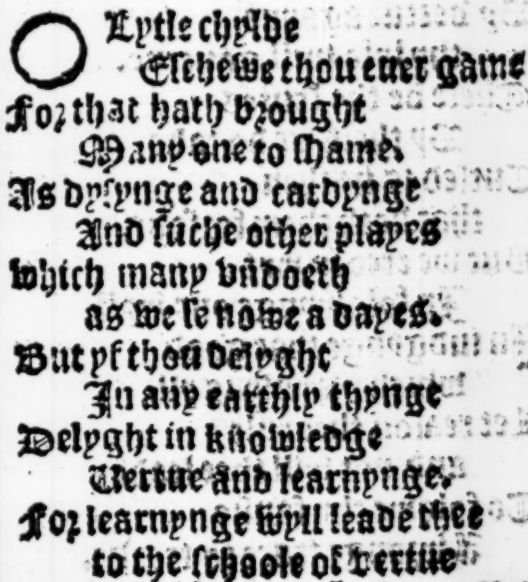 O Lytle chylde
Eschewe thou euer game
For that hath brought
Many one to shame.
As dysynge and cardynge
And suche other playes
which many vndoeth
as we se nowe a dayes.
But yf thou delyght
In any earthly thynge
Delyght in knowledge
Vertue and learnynge.
For learnynge wyll leade thee
to the schoole of vertue